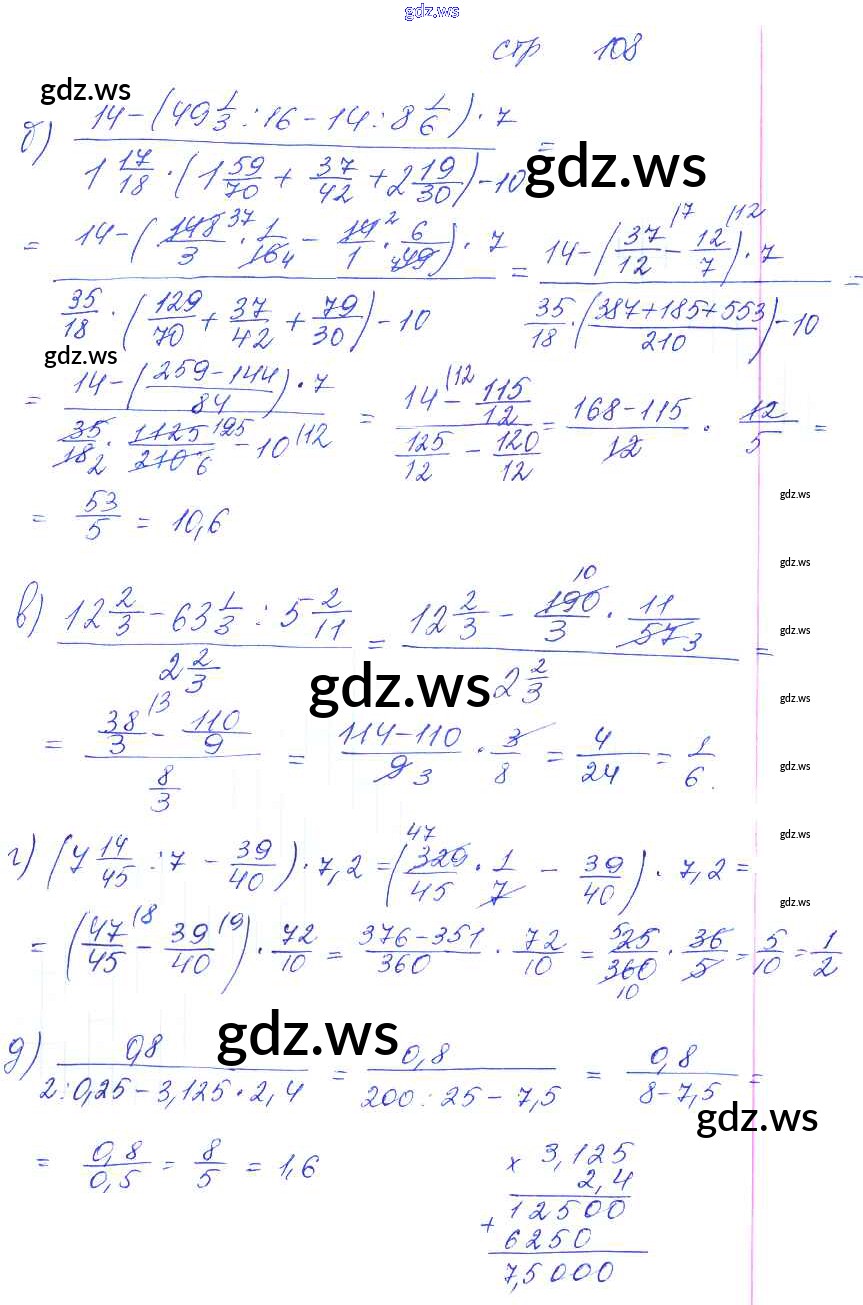 gdz.ws
стр 108
gdz.ws
б) (14 - (49 1/3 : 16 - 14 : 8 1/6) · 7) / (1 17/18 · (1 59/70 + 37/42 + 2 19/30) - 10) =
gdz.ws
= (14 - (148/3 37 · 1/16 4 - 14/1 2 · 6/49 7) · 7) / (35/18 · (129/70 + 37/42 + 79/30) - 10) = (14 - (37/12 |7 - 12/7 |12) · 7) / (35/18 · ((387+185+553)/210) - 10) =
gdz.ws
= (14 - ((259-144)/84) · 7) / (35/18 2 · 1125/210 125 6 - 10 |12) = (14 |12 - 115/12) / (125/12 - 120/12) = (168-115)/12 · 12/5 =
gdz.ws
= 53/5 = 10,6
gdz.ws
в) (12 2/3 - 63 1/3 : 5 2/11) / (2 2/3) = (12 2/3 - 190/3 10 · 11/57 3) / (2 2/3) =
gdz.ws
gdz.ws
gdz.ws
= (38/3 |3 - 110/9) / (8/3) = (114-110)/9 3 · 3/8 = 4/24 = 1/6.
gdz.ws
gdz.ws
г) (7 14/45 : 7 - 39/40) · 7,2 = (329/45 47 · 1/7 - 39/40) · 7,2 =
gdz.ws
= (47/45 |8 - 39/40 |9) · 72/10 = (376-351)/360 · 72/10 = 25/360 5 10 · 36/5 = 5/10 = 1/2
gdz.ws
д) 0,8 / (2:0,25 - 3,125 · 2,4) = 0,8 / (200 : 25 - 7,5) = 0,8 / (8-7,5) =
gdz.ws
= 0,8/0,5 = 8/5 = 1,6
× 3,125
2,4
12500
+
6250
7,5000